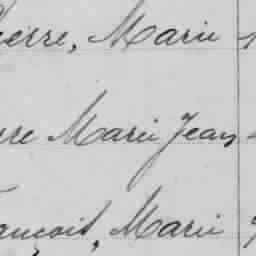 Pierre, Marie
Marie Jean
François, Marie